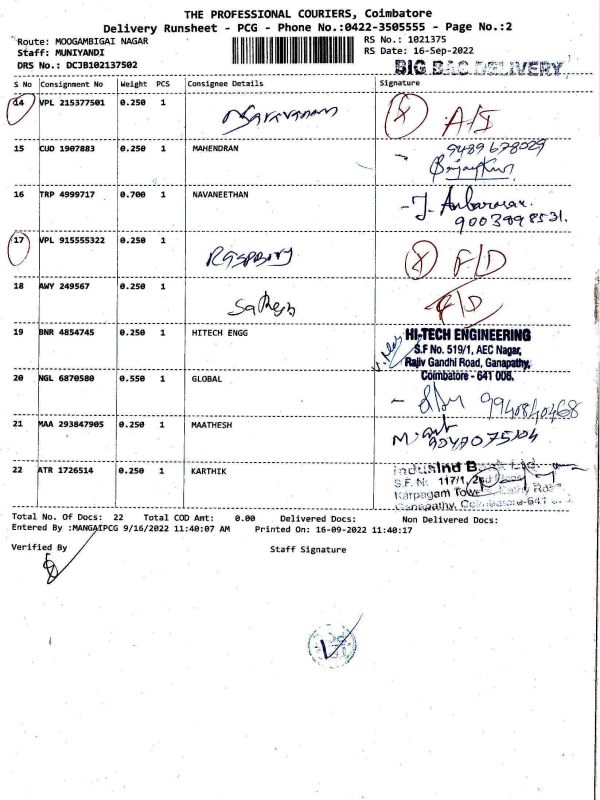 THE PROFESSIONAL COURIERS, Coimbatore
Delivery Runsheet - PCG - Phone No.:0422-3505555 - Page No.:2
Route: MOOGAMBIGAI NAGAR RS No.: 1021375
Staff: MUNIYANDI RS Date: 16-Sep-2022
DRS No.: DCJB102137502
BIG BAG DELIVERY
S No Consignment No Weight PCS Consignee Details Signature
14 VPL 215377501 0.250 1 A/S
15 CUD 1907883 0.250 1 MAHENDRAN 9489678029
16 TRP 4999717 0.700 1 NAVANEETHAN - J. Anbarasar.
9003898531.
17 VPL 915555322 0.250 1 F/D
18 AWY 249567 0.250 1 F/D
19 BNR 4854745 0.250 1 HITECH ENGG HI-TECH ENGINEERING
S.F No. 519/1, AEC Nagar,
Rajiv Gandhi Road, Ganapathy,
Coimbatore - 641 006.
20 NGL 6870580 0.550 1 GLOBAL 9940840468
21 MAA 293847905 0.250 1 MAATHESH
22 ATR 1726514 0.250 1 KARTHIK IndusInd Bank Ltd.
S.F. No. 117/1, 2nd
Karpagam Tower
Ganapathy, Coimbatore-641
Total No. Of Docs: 22 Total COD Amt: 0.00 Delivered Docs: Non Delivered Docs:
Entered By :MANGAIPCG 9/16/2022 11:40:07 AM Printed On: 16-09-2022 11:40:17
Verified By Staff Signature